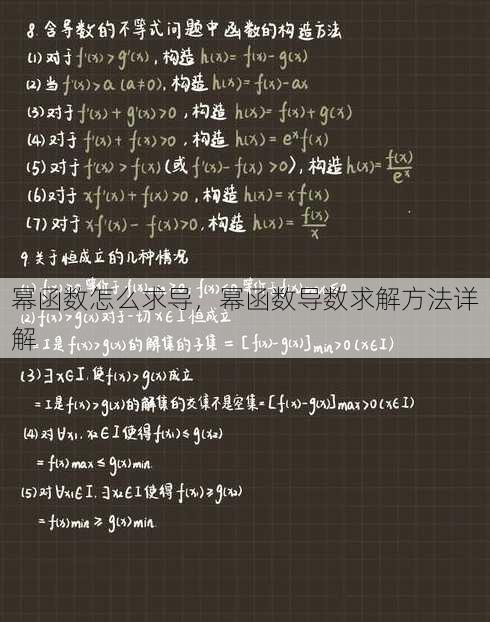 8.含导数的不等式问题中函数的构造方法
(1)对于f'(x)>g'(x),构造h(x)=f(x)-g(x)
(2)当f'(x)>a (a≠0),构造h(x)=f(x)-ax
(3)对于f'(x)+g'(x)>0,构造h(x)=f(x)+g(x)
(4)对于f'(x)+f(x)>0,构造h(x)=eˣf(x)
(5)对于f'(x)>f(x)(或f'(x)-f(x)>0),构造h(x)=f(x)/eˣ
(6)对于xf'(x)+f(x)>0,构造h(x)=xf(x)
(7)对于xf'(x)-f(x)>0,构造h(x)=f(x)/x
9.关于恒成立的几种情况
幂函数怎么求导，幂函数导数求解方法详
解
(2)f(x)>g(x)对于一切x∈I恒成立
=I是f(x)>g(x)的解集的子集=[f(x)-g(x)]min>0(x∈I)
(3)∃x∈I,使f(x)>g(x)成立
=I是f(x)>g(x)的解集的交集不是空集=[f(x)-g(x)]max>0(x∈I)
(4)对∀x₁,x₂∈I使得f(x₁)≤g(x₂)
=f(x)max≤g(x)min
(5)对∀x₁∈I,∃x₂∈I使得f(x₁)≥g(x₂)
=f(x)min≥g(x)min